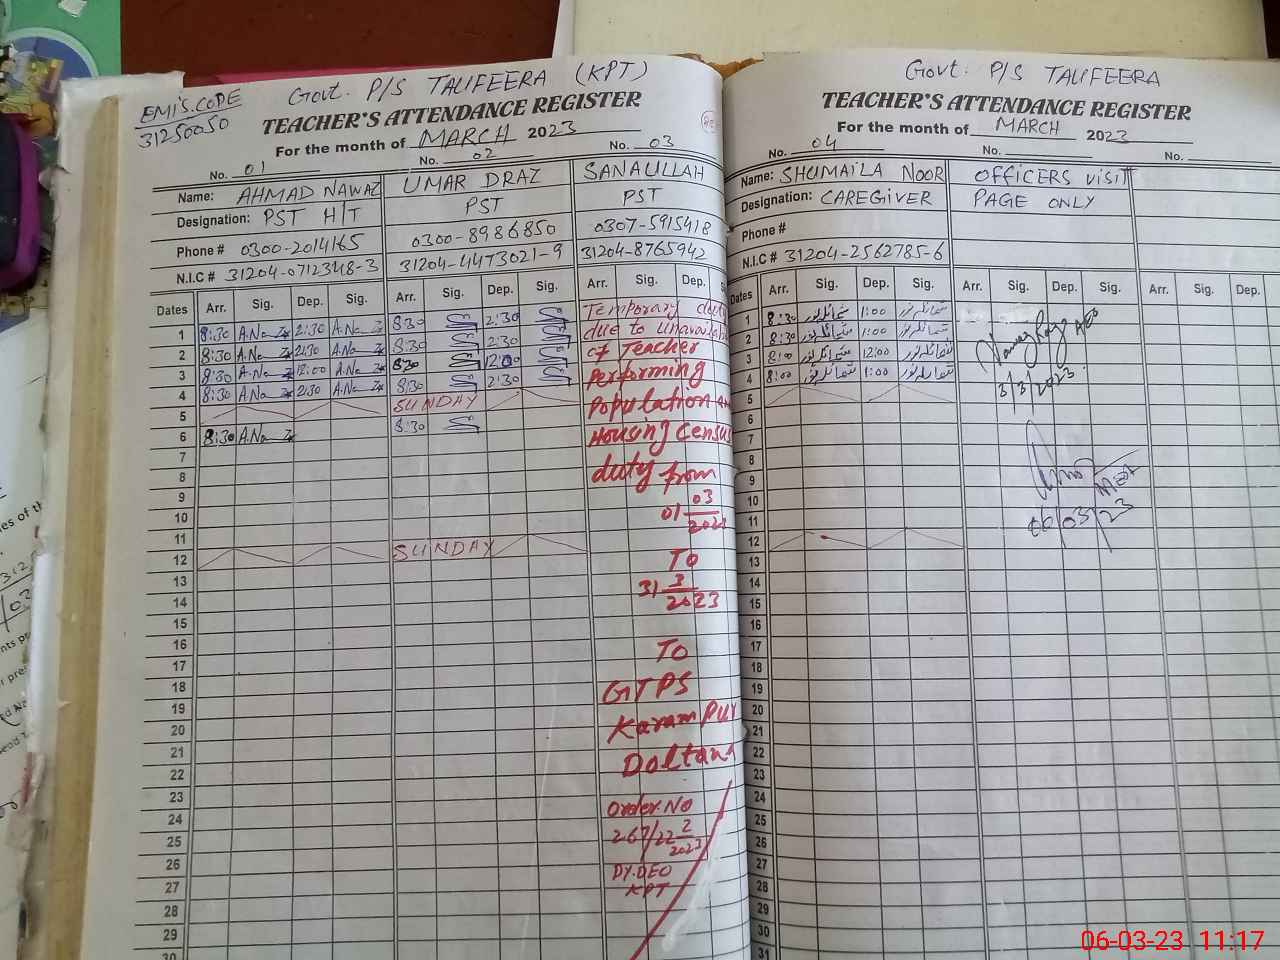 EMIS.CODE
31250050
Govt. P/S TALIFEERA (KPT)
TEACHER'S ATTENDANCE REGISTER
For the month of MARCH 2023
No. 01 No. 02 No. 03
Name: AHMAD NAWAZ UMAR DRAZ SANAULLAH
Designation: PST H/T PST PST
Phone # 0300-2014165 0300-8986850 0307-5915418
N.I.C # 31204-0712348-3 31204-4473021-9 31204-8765942
Dates Arr. Sig. Dep. Sig. Arr. Sig. Dep. Sig. Arr. Sig. Dep.
1 8:30 A.Na 2:30 A.Na 8:30 2:30
2 8:30 A.Na 2:30 A.Na 8:30 2:30
3 8:30 A.Na 12:00 A.Na 8:30 12:00
4 8:30 A.Na 2:30 A.Na 8:30 2:30
5 SUNDAY
6 8:30 A.Na 8:30
7
8
9
10
11
12 SUNDAY
13
14
15
16
17
18
19
20
21
22
23
24
25
26
27
28
29
30
Temporary
due to
of Teacher
Performing
Population
Housing Census
duty from
01 03
TO
31 3
2023
TO
GTPS
Karam Pur
Daltana
Order.No
267/22 2
2023
DY.DEO
KPT
Govt. P/S TALIFEERA
TEACHER'S ATTENDANCE REGISTER
For the month of MARCH 2023
No. 04 No. No.
Name: SHUMAILA NOOR OFFICERS VISIT
Designation: CAREGIVER PAGE ONLY
Phone #
N.I.C # 31204-2562785-6
Dates Arr. Sig. Dep. Sig. Arr. Sig. Dep. Sig. Arr. Sig. Dep.
1 8:30 شمائلہ نور 1:00 شمائلہ نور
2 8:30 شمائلہ نور 1:00 شمائلہ نور
3 8:00 شمائلہ نور 12:00 شمائلہ نور
4 8:00 شمائلہ نور 1:00 شمائلہ نور
5
6
7
8
9
10
11
12
13
14
15
16
17
18
19
20
21
22
23
24
25
26
27
28
29
30
31
AEO
3/3/2023
MEA
06/03/23
06-03-23 11:17